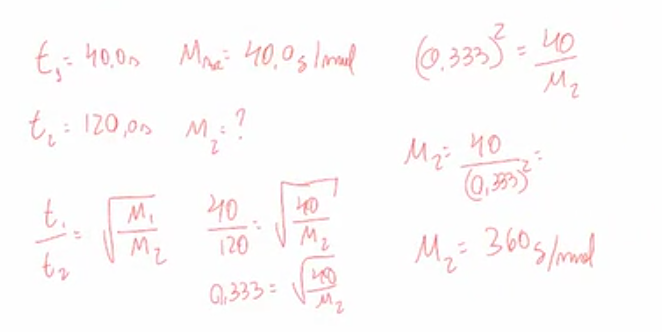 t₁ = 40,0s   M₁ = 40,0 g/mol
t₂ = 120,0s   M₂ = ?
t₁/t₂ = √(M₁/M₂)   40/120 = √(40/M₂)
0,333 = √(40/M₂)
(0,333)² = 40/M₂
M₂ = 40/(0,333)² =
M₂ = 360 g/mol